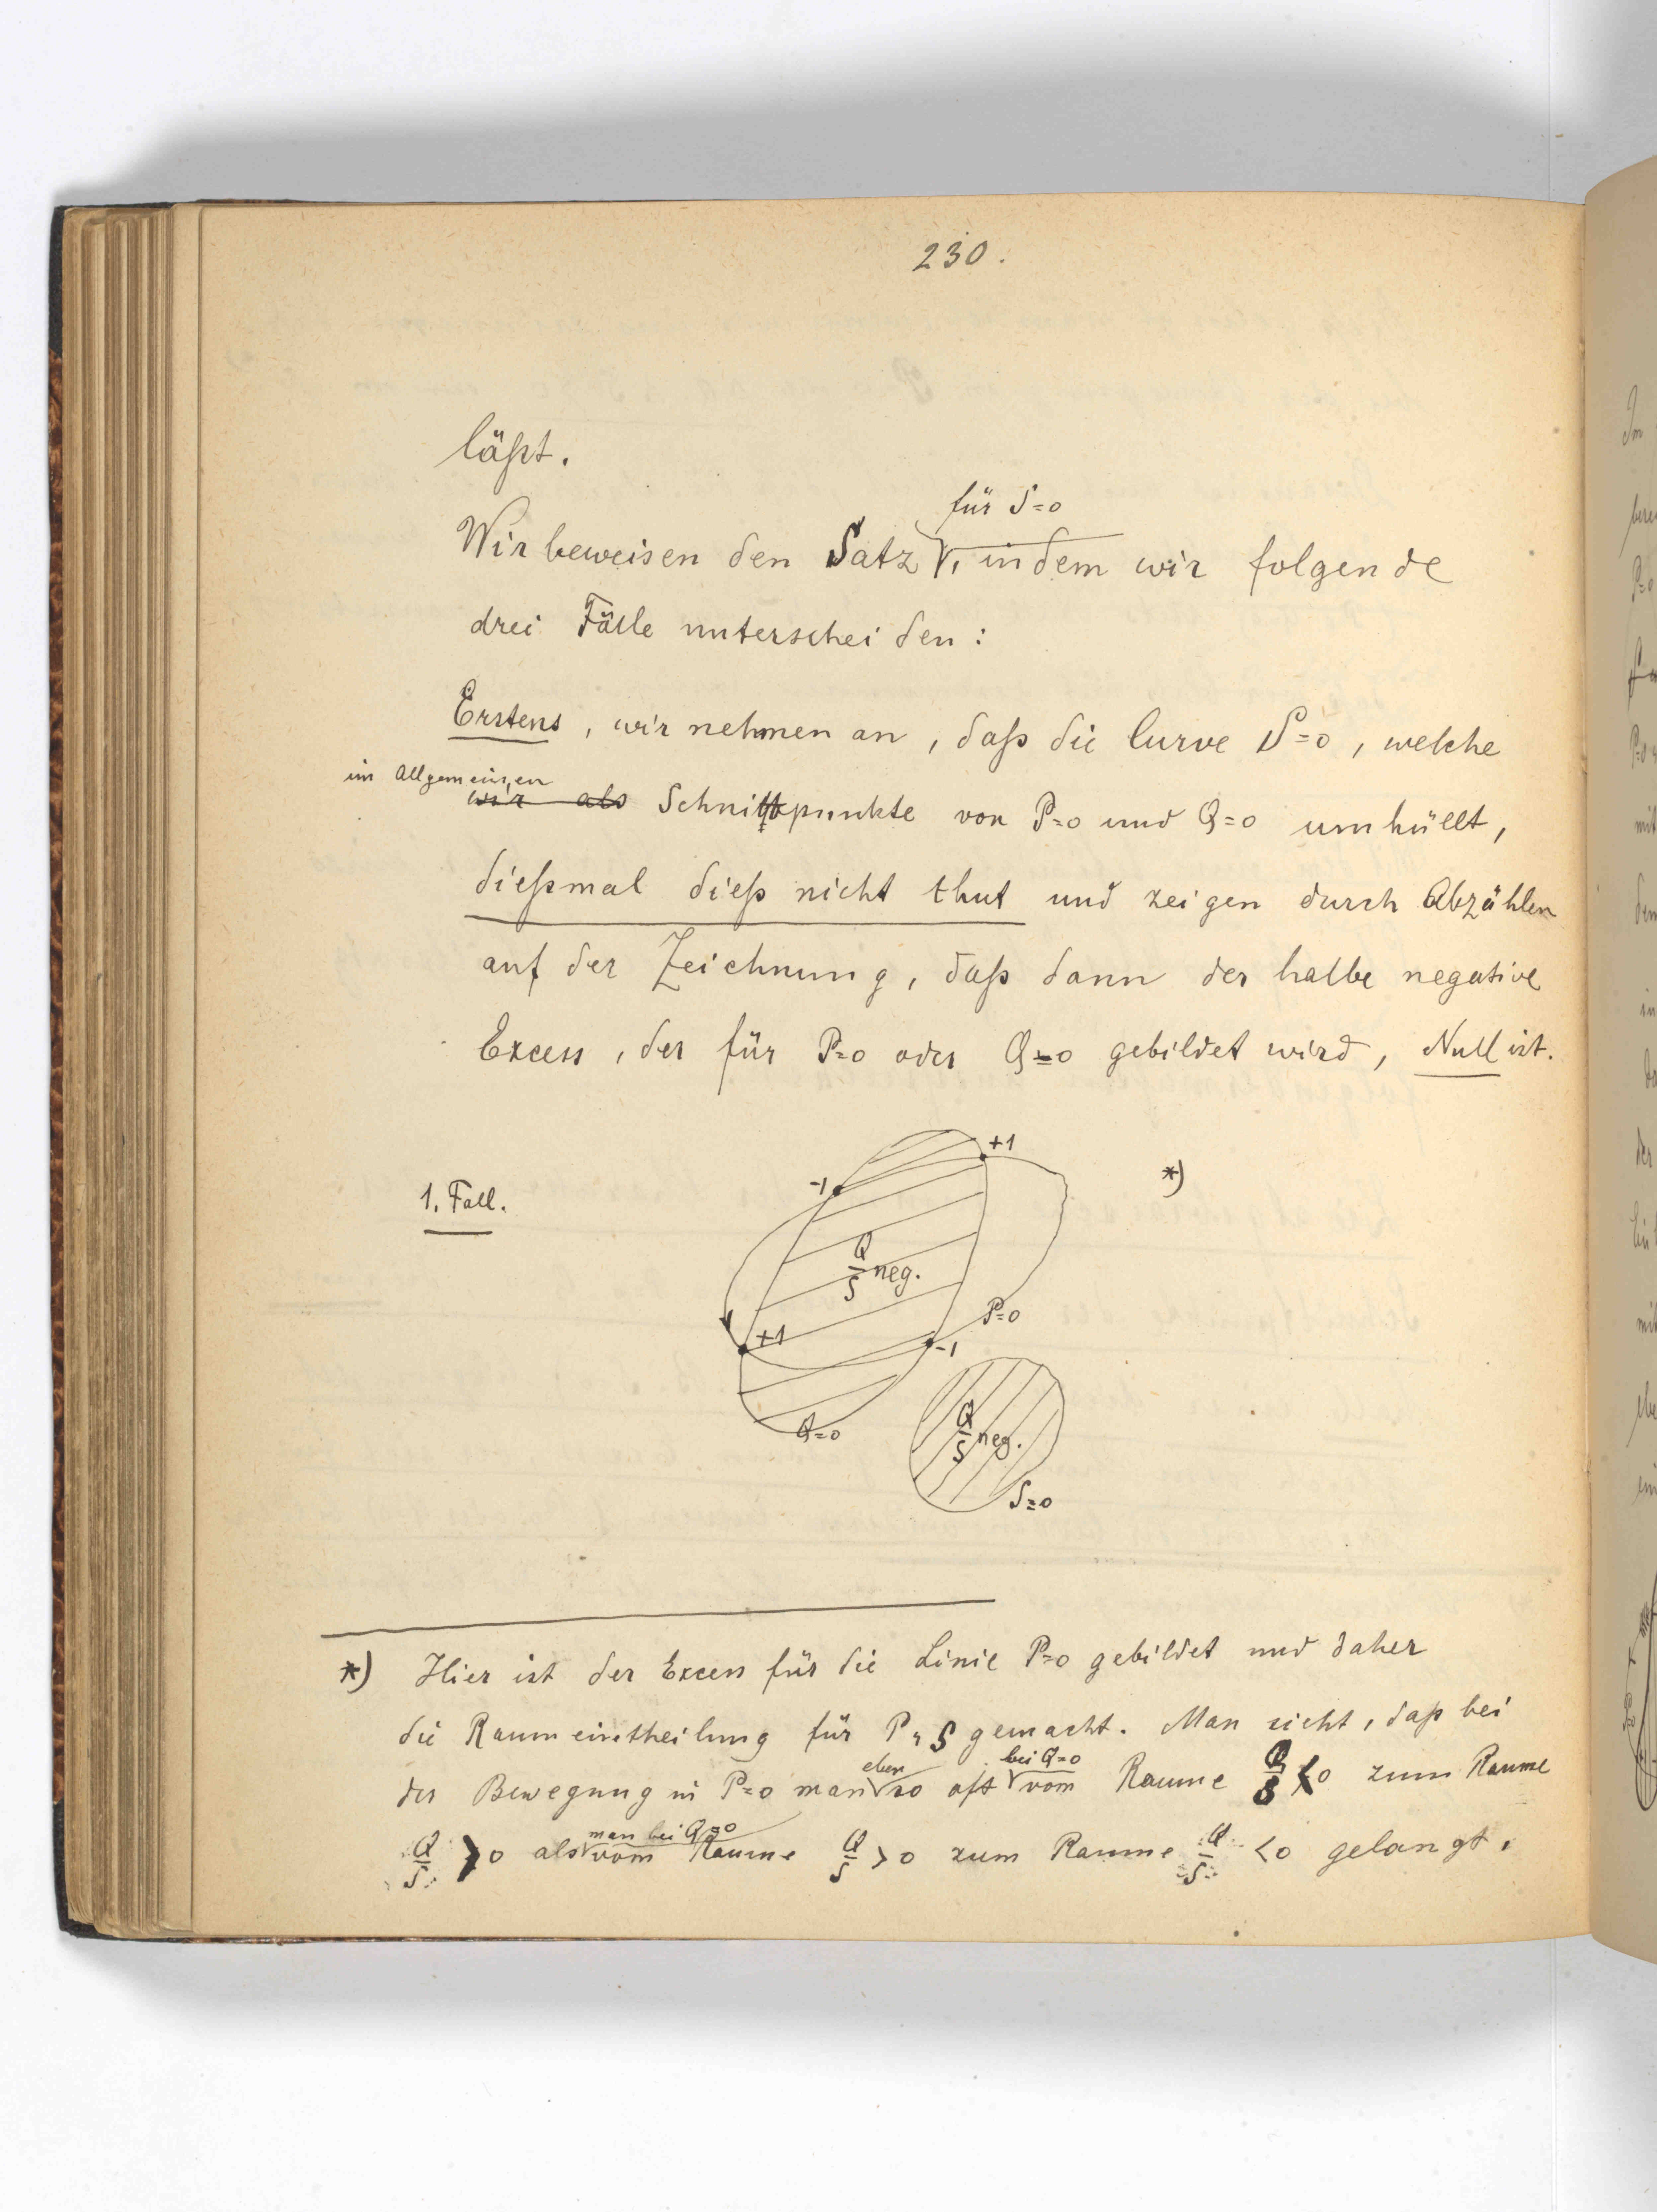 230.
läßt.
für S=0
Wir beweisen den Satz, indem wir folgende
drei Fälle unterscheiden:
Erstens, wir nehmen an, daß die Curve S=0, welche
im Allgemeinen
wir als Schnittpunkte von P=0 und Q=0 umhüllt,
dießmal dieß nicht thut und zeigen durch Abzählen
auf der Zeichnung, daß dann der halbe negative
Excess, der für P=0 oder Q=0 gebildet wird, Null ist.
1. Fall.
+1
*)
-1
Q/S neg.
P=0
+1
-1
Q=0
Q/S neg.
S=0
*) Hier ist der Excess für die Linie P=0 gebildet und daher
die Raumeintheilung für P, S gemacht. Man sieht, daß bei
eben bei Q=0
der Bewegung in P=0 man so oft vom Raume Q/S <0 zum Raume
man bei Q=0
Q/S >0 als vom Raume Q/S >0 zum Raume Q/S <0 gelangt.